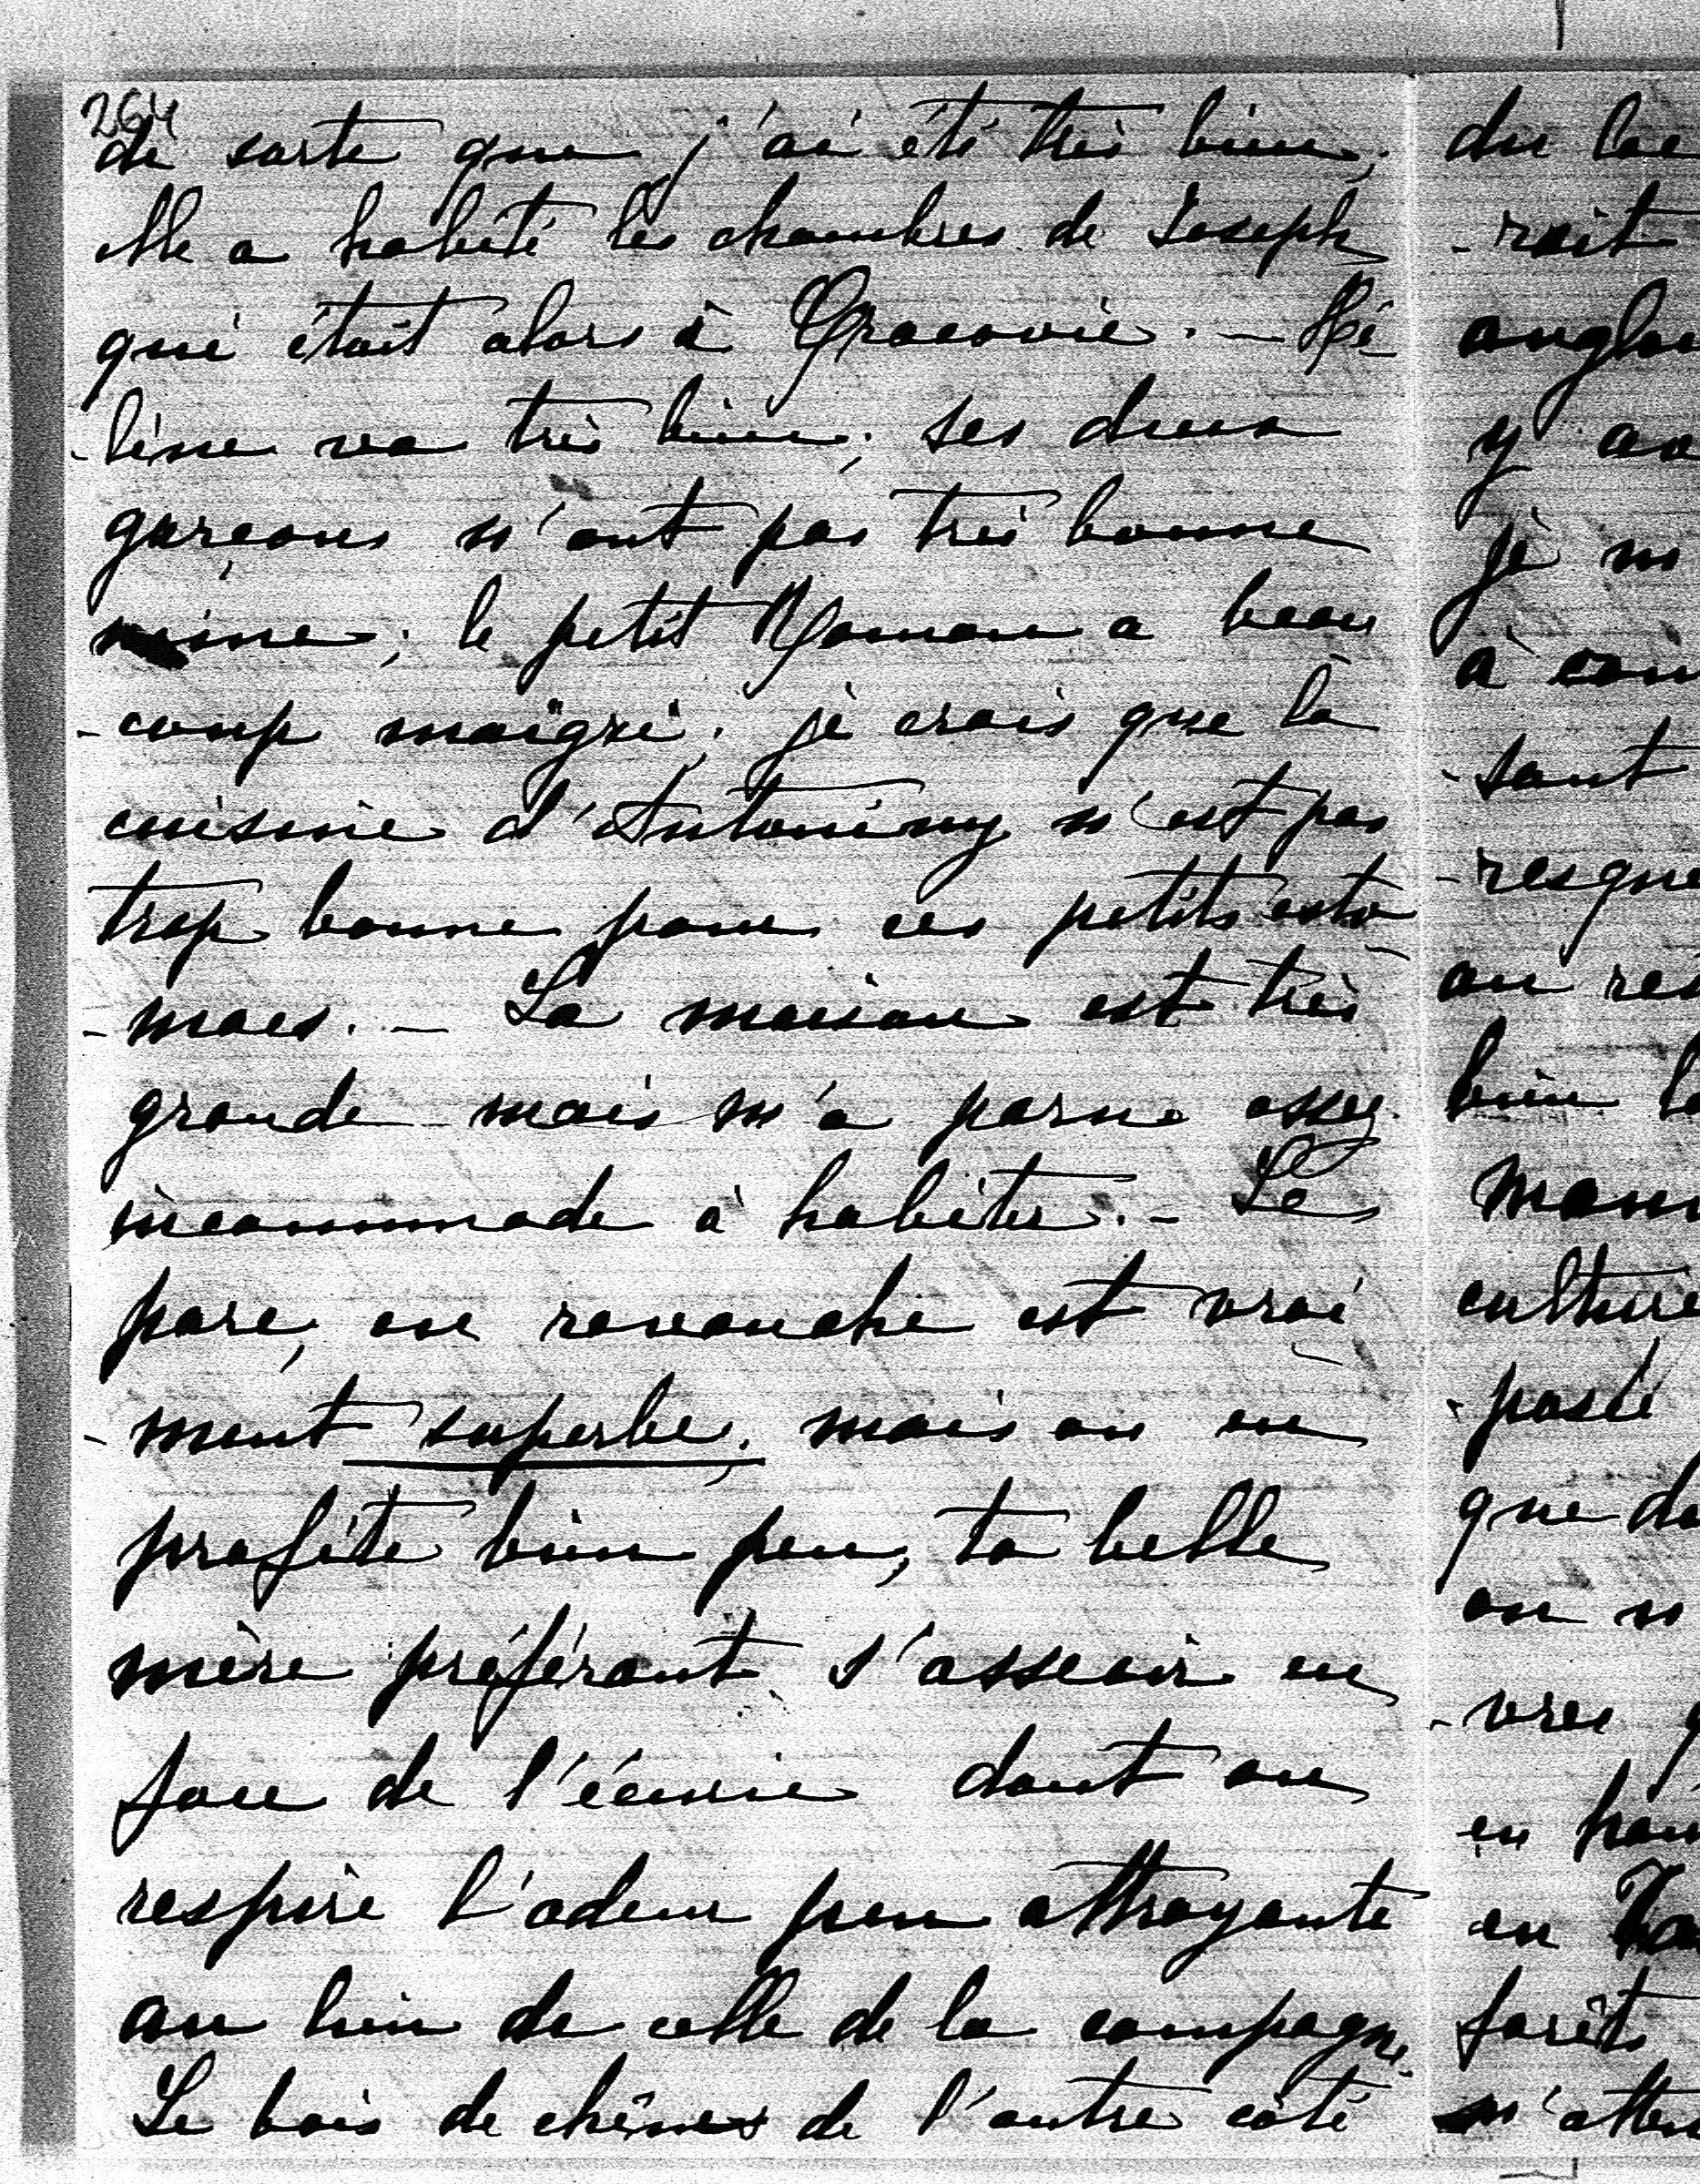 264
de sorte que j'ai été très bien;
elle a habité les chambres de Joseph
qui était alors à Cracovie. — Hé-
-lène va très bien; ses deux
garçons n'ont pas très bonne
mine; le petit Roman a beau
-coup maigri; je crois que la
cuisine d'Antoniny n'est pas
trop bonne pour ces petits esto-
-macs. — La maison est très
grande mais m'a parue assez
incommode à habiter. — Le
parc, en revanche est vrai-
-ment superbe; mais on en
profite bien peu, ta belle
mère préférant s'asseoir en
face de l'écurie dont on
respire l'odeur peu attrayante
au lieu de celle de la campagne.
Le bois de chênes de l'autre côté
du lac
-rait
y
je m
à
-sant
-resque
on
bien
culture
-posée
que
on n
-vres
en
en
forêts